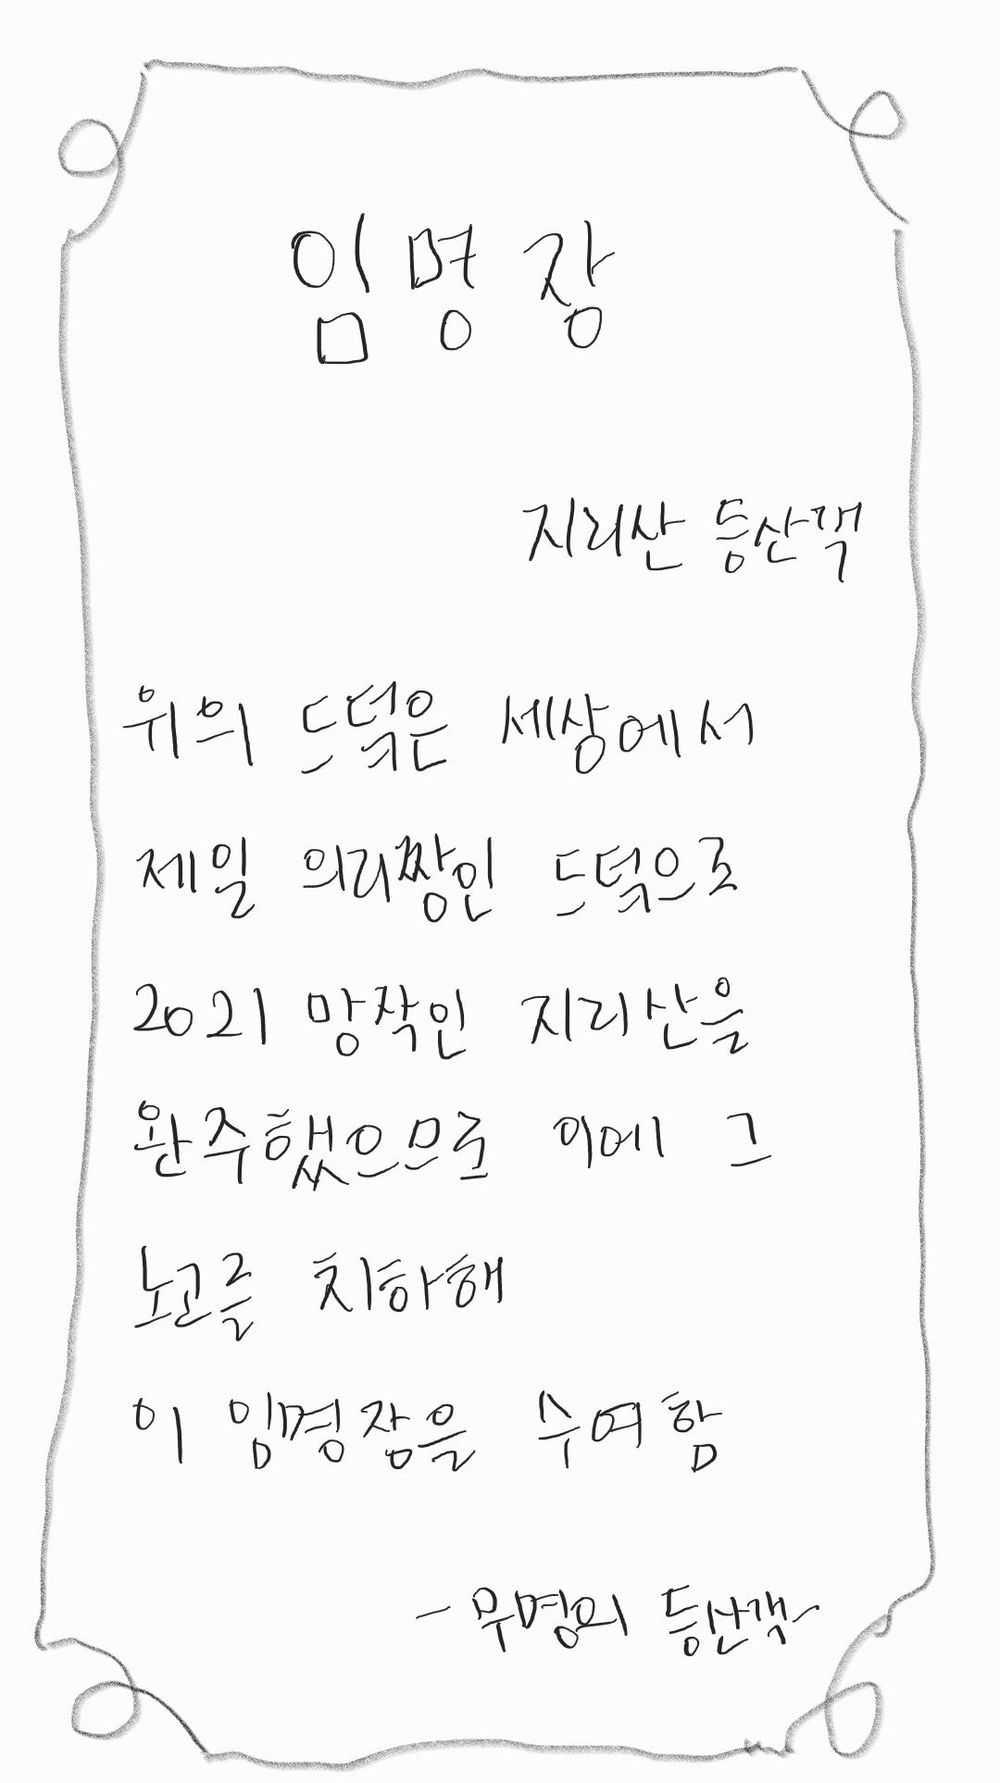 임명장
지리산 등산객
위의 드덕은 세상에서
제일 의리짱인 드덕으로
2021 망작인 지리산을
완주했으므로 이에 그
노고를 치하해
이 임명장을 수여함
-무명의 등산객-